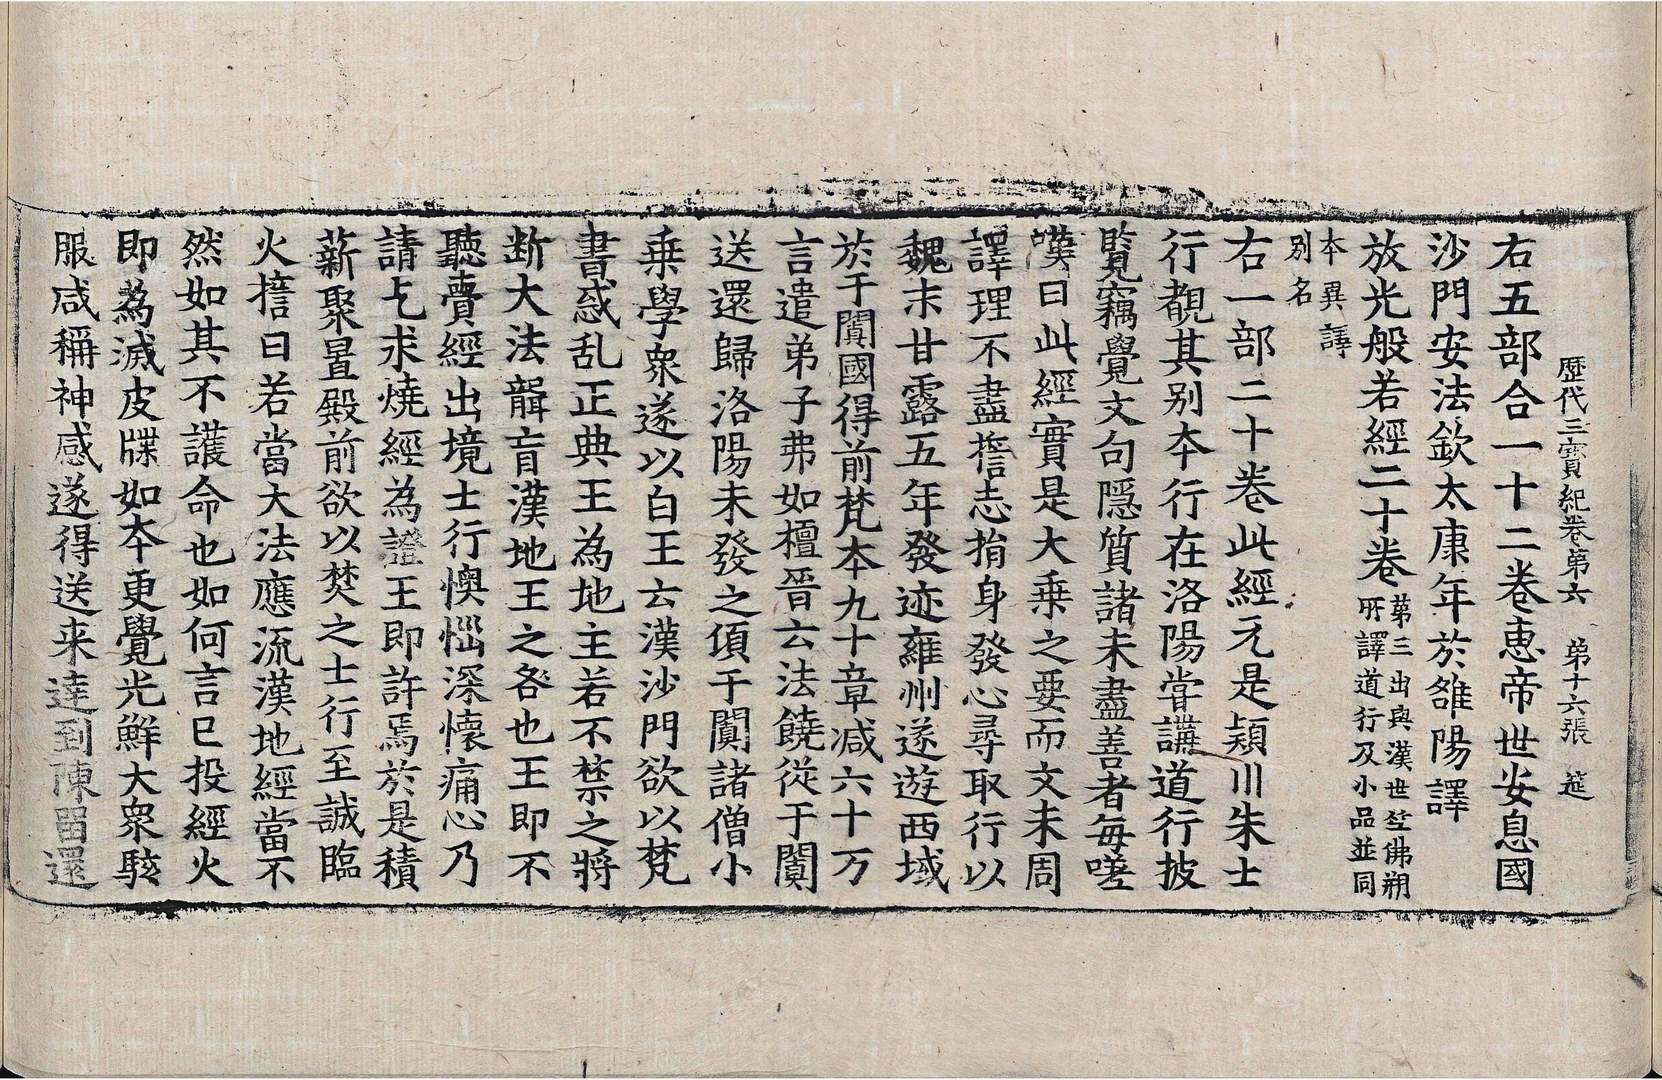 歷代三寶紀卷第六　第十六張　筵
右五部合一十二卷惠帝世安息國
沙門安法欽太康年於雒陽譯
放光般若經二十卷第三出與漢世竺佛朔
所譯道行及小品並同
本異譯
別名
右一部二十卷此經元是潁川朱士
行覩其別本行在洛陽甞講道行披
覽竊覺文句隱質諸未盡善者每嗟
嘆曰此經實是大乘之要而文未周
譯理不盡擔志捐身發心尋取行以
魏末甘露五年發迹雍州遂遊西域
於于闐國得前梵本九十章減六十万
言遣弟子弗如檀晉云法饒從于闐
送還歸洛陽未發之頃于闐諸僧小
乗學衆遂以白王云漢沙門欲以梵
書惑乱正典王為地主若不禁之將
断大法聾盲漢地王之咎也王即不
聽賣經出境士行懊惱深懷痛心乃
請乞求燒經為證王即許焉於是積
薪聚置殿前欲以焚之士行至誠臨
火擔曰若當大法應流漢地經當不
然如其不護命也如何言已投經火
即為滅皮牒如本更覺光鮮大衆駭
服咸稱神感遂得送来達到陳留還